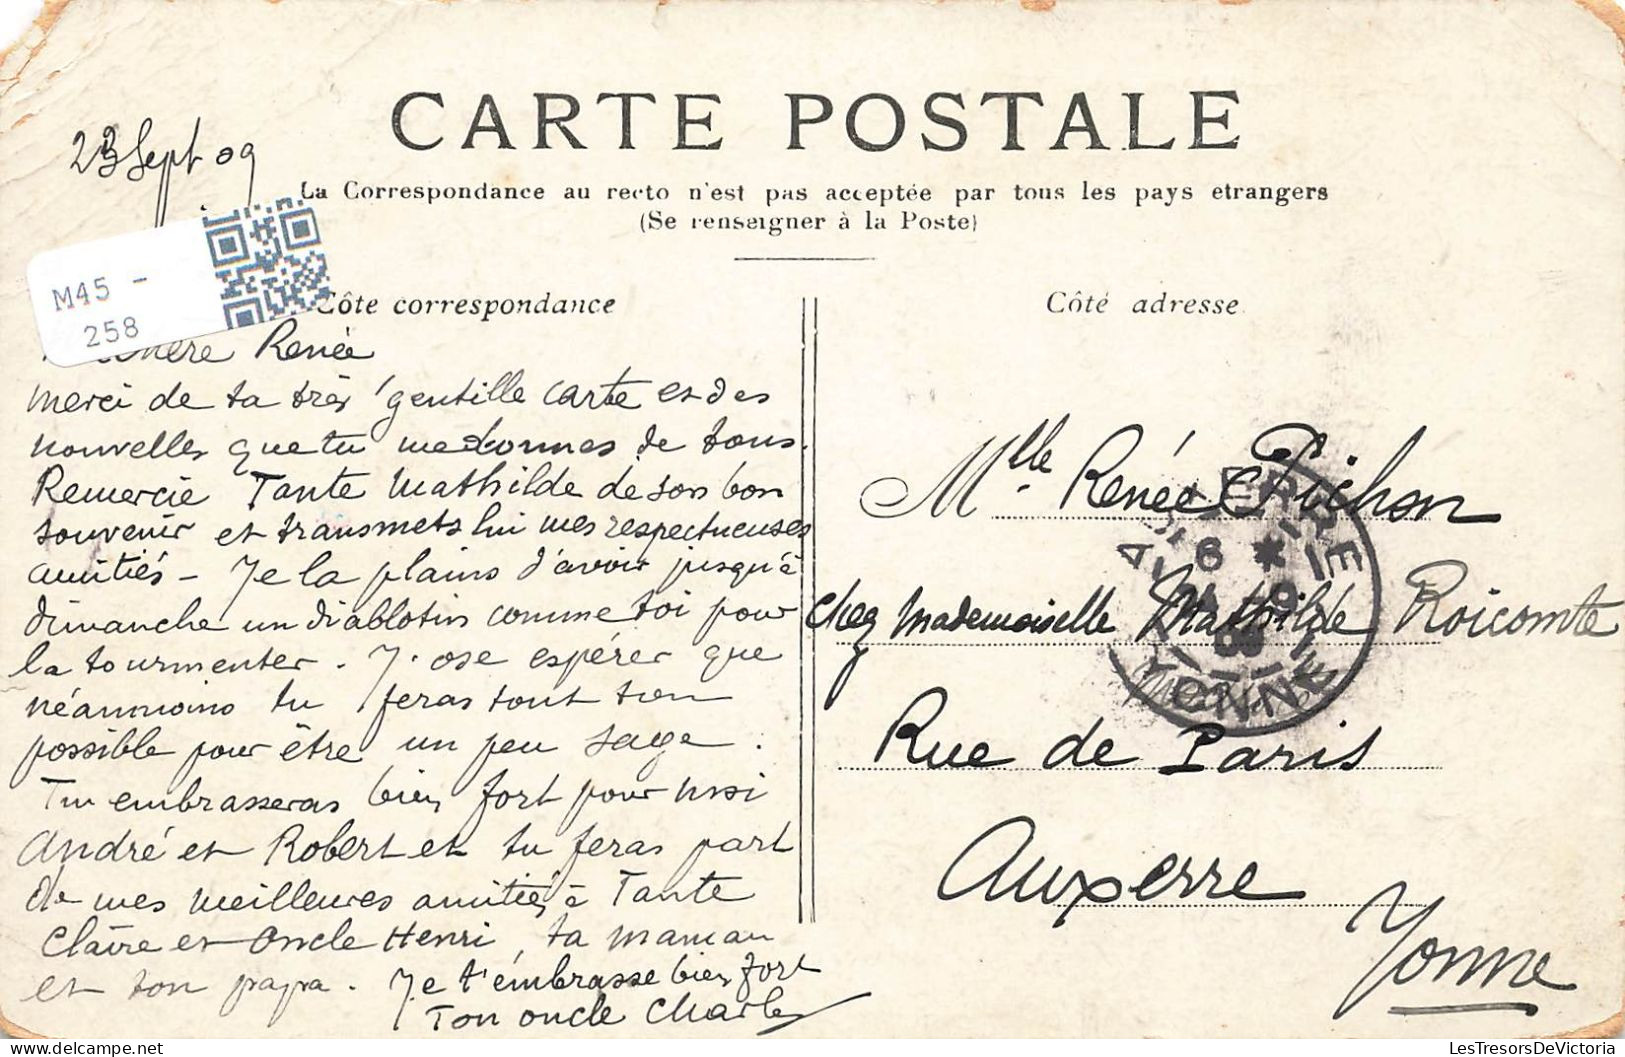 CARTE POSTALE
23 Sept 09
La Correspondance au recto n'est pas acceptée par tous les pays etrangers
(Se renseigner à la Poste)
M45 -
258
Côte correspondance
chère Renée
merci de ta très gentille carte et des
nouvelles que tu me donnes de tous.
Remercie Tante Mathilde de son bon
souvenir et transmets lui mes respectueuses
amitiés - Je la plains d'avoir jusqu'à
dimanche un diablotin comme toi pour
la tourmenter. J'ose espérer que
néanmoins tu feras tout ton
possible pour être un peu sage.
Tu embrasseras bien fort pour moi
André et Robert et tu feras part
de mes meilleures amitiés à Tante
Claire et Oncle Henri, ta maman
et ton papa. Je t'embrasse bien fort
Ton oncle Charles
Côté adresse
Mlle Renée Pichon
chez Mademoiselle Mathilde Roicomte
Rue de Paris
Auxerre
Yonne
AUXERRE
YONNE
LesTresorsDeVictoria